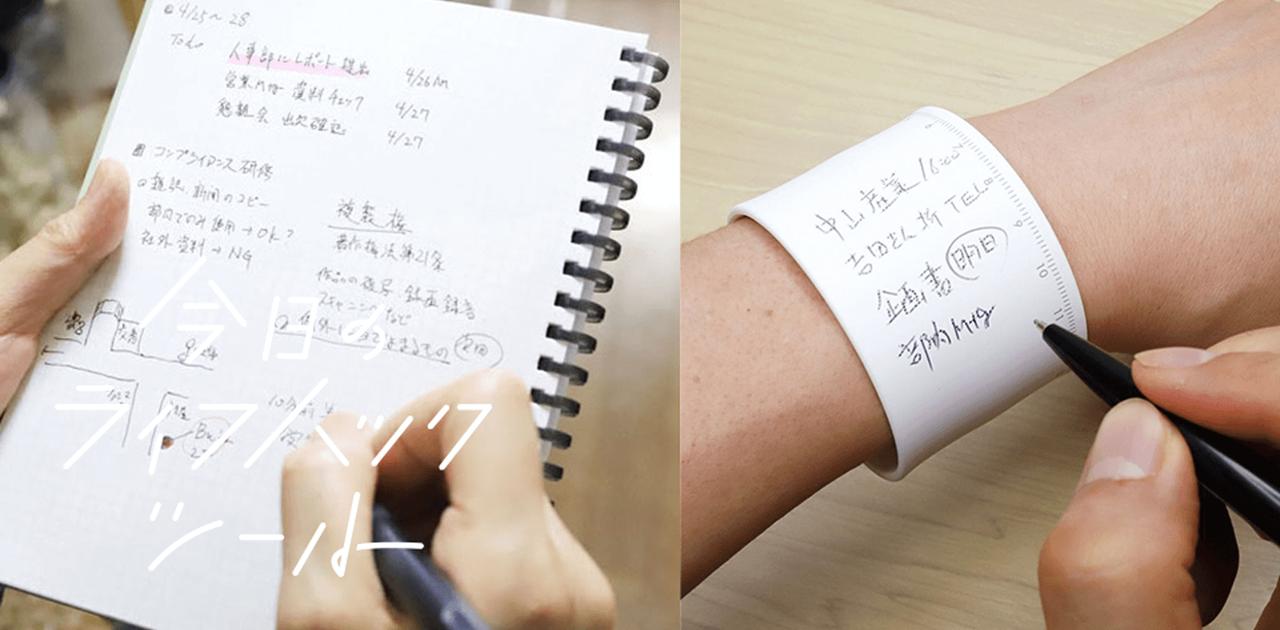 4/25〜28
Todo
人事部にレポート提出 4/26AM
営業Mtg 資料チェック 4/27
勉強会 出欠確認 4/27
コンプライアンス研修
雑誌、新聞のコピー
部内でのみ使用→OK?
社外資料→NG
複製権
著作権法第21条
作品の複写 録画 録音
スキャニングなど
10分前
今日の
ライフハック
ツール
中山産業 16:00
吉田さん TEL
企画書 明日
部内Mtg
9
10
11